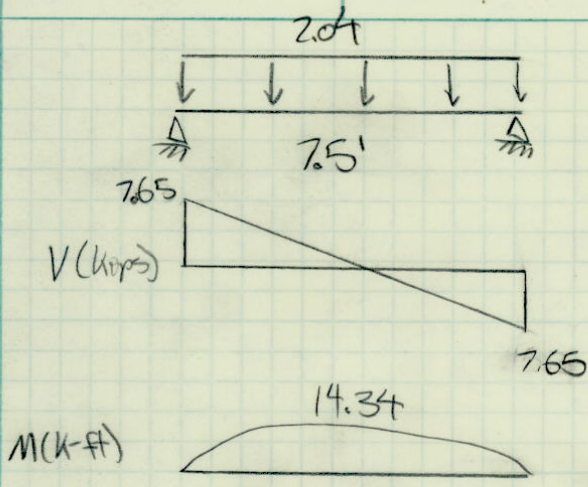 2.04
7.5'
7.65
V (kips)
7.65
14.34
M(K-ft)